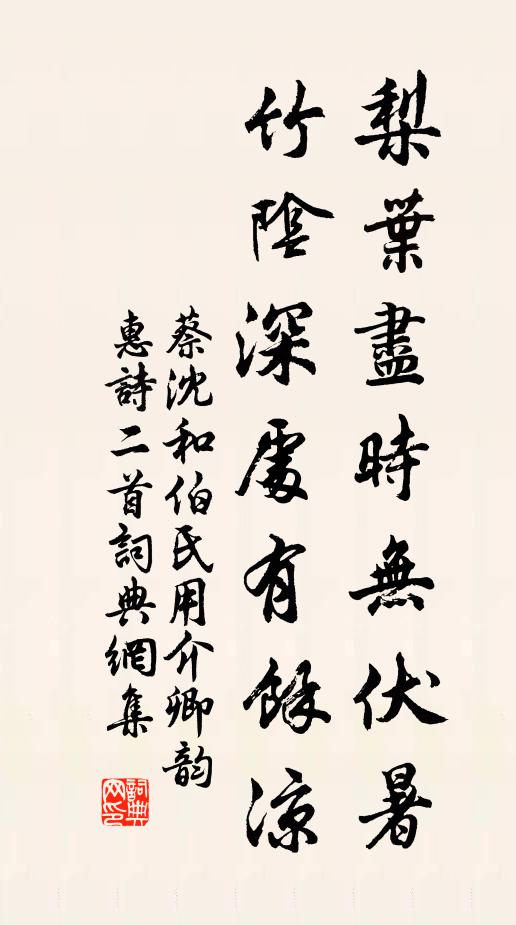 梨葉盡時無伏暑
竹陰深處有餘涼
蔡沈和伯氏用介卿韵
惠詩二首詞典網集
詞典
网印